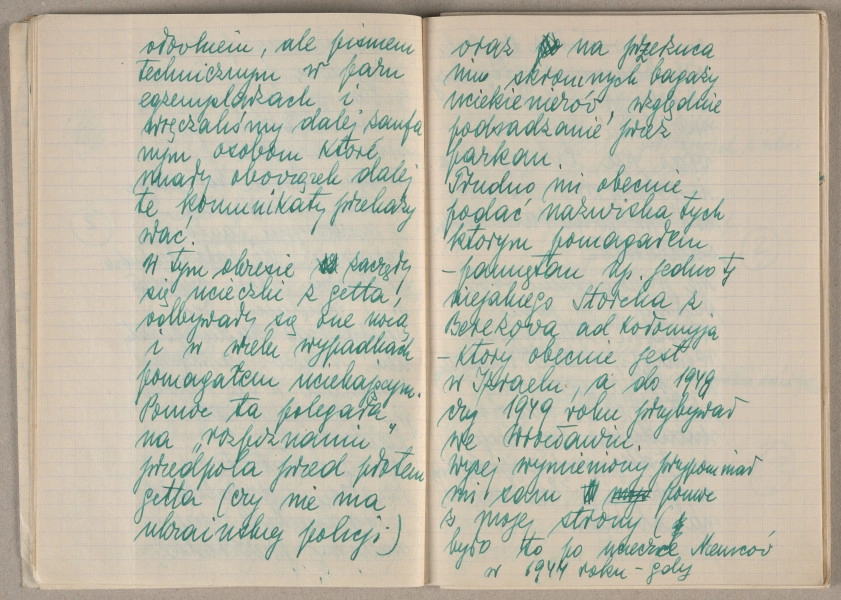 odbolniem, ale pismem
technicznym w paru
egzemplażach i
wręczaliśmy dalej zaufa
nym osobom które
miały obowiązek dalej
te komunikaty przekazy
wać.
W tym okresie zaczęły
się ucieczki z getta,
odbywały się one nocą
i w wielu wypadkach
pomagałem uciekającym.
Pomoc ta polegała
na „rozpoznaniu"
przedpola przed płotem
getta (czy nie ma
ukraińskiej policji)
oraz na przeżuca
niu skromnych bagaży
uciekinierów, względnie
podsadzanie przez
parkan.
Trudno mi obecnie
podać nazwiska tych
którym pomagałem
- pamiętam np. jedno tj
niejakiego Storcha z
Berezowa ad Kołomyja
- który obecnie jest
w Izraelu, a do 1949
czy 1949 roku przybywał
we Wrocławiu.
Wyżej wymieniony przypominał
mi sam pomoc
z mojej strony (
było to po ucieczce Niemców
w 1944 roku - gdy